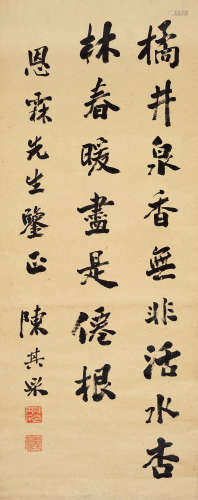 橘井泉香無非活水杏
林春暖盡是僊根
恩霖先生鑒正 陳其采